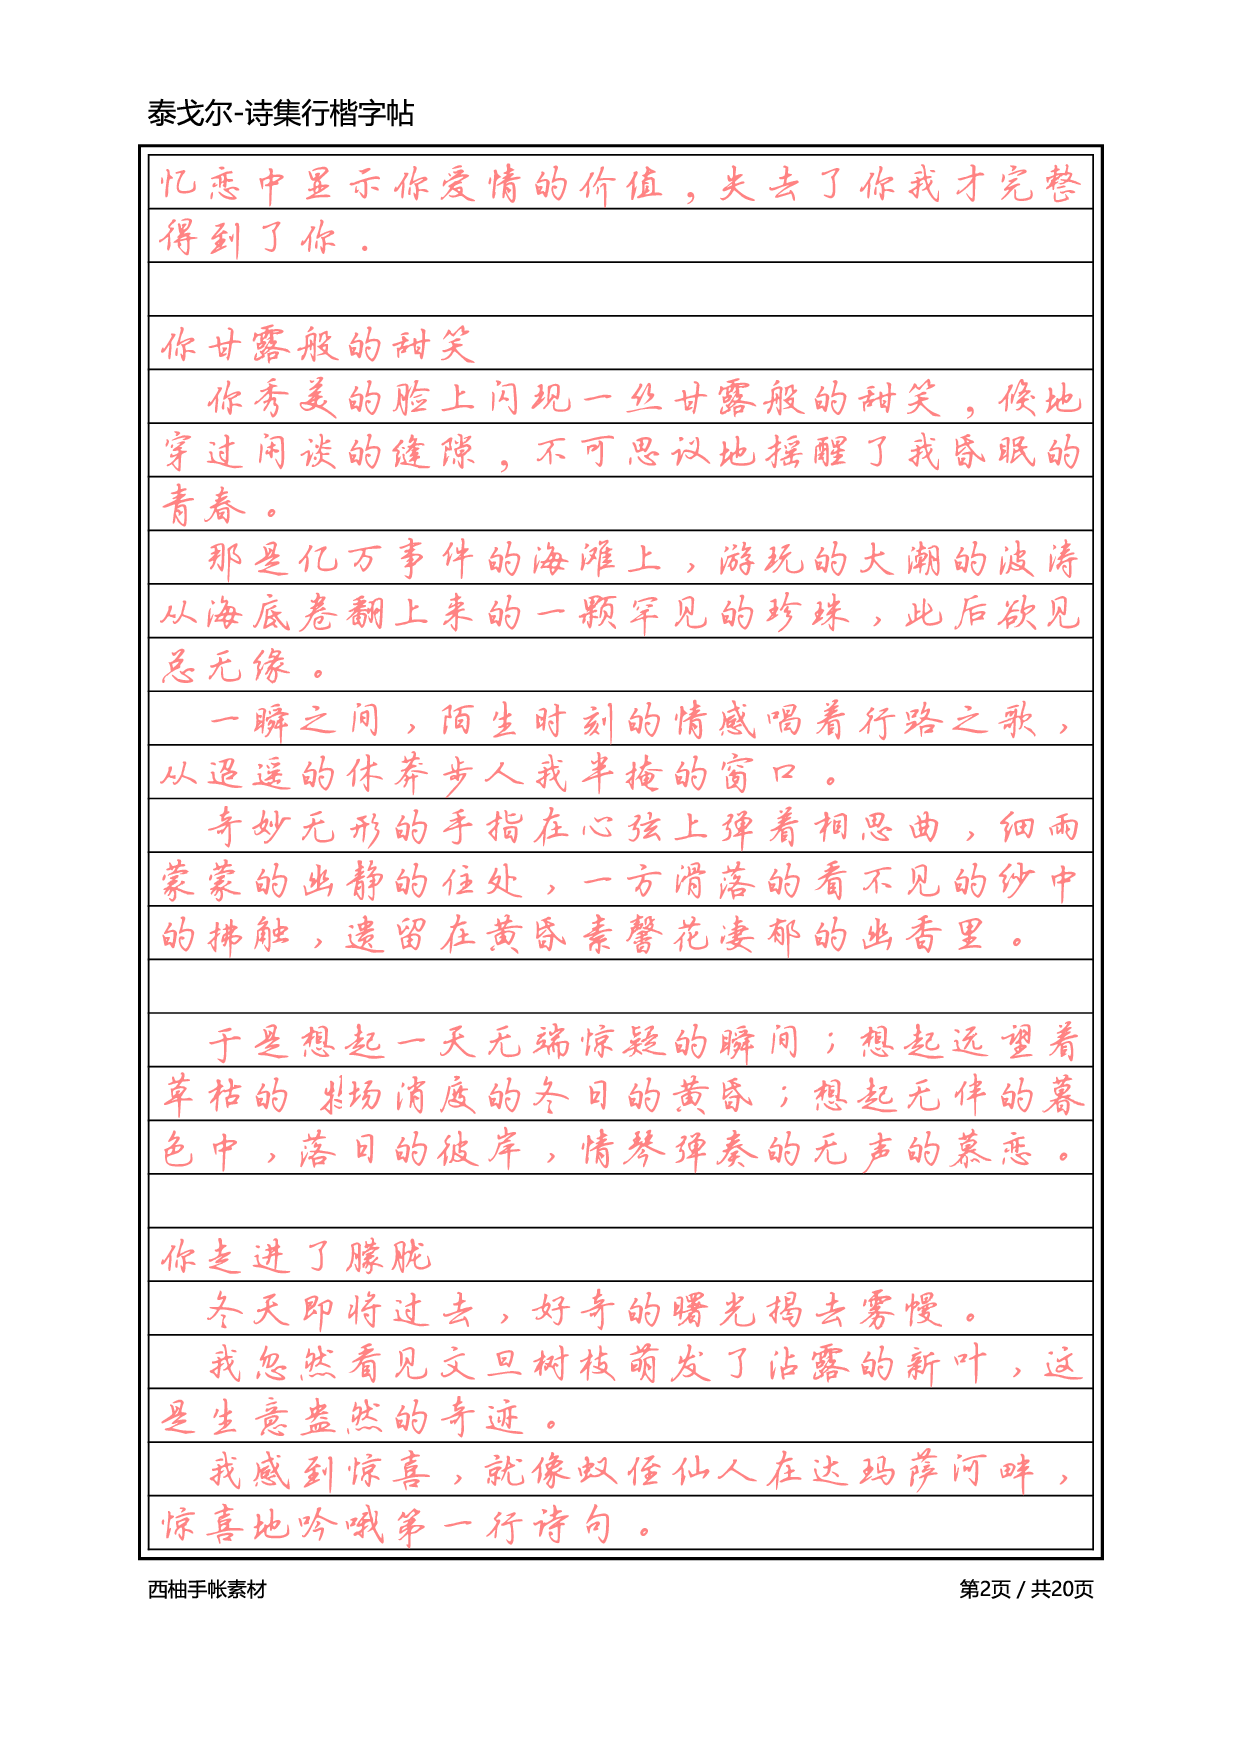 泰戈尔-诗集行楷字帖
忆恋中显示你爱情的价值，失去了你我才完整
得到了你．
你甘露般的甜笑
你秀美的脸上闪现一丝甘露般的甜笑，倏地
穿过闲谈的缝隙，不可思议地摇醒了我昏眠的
青春。
那是亿万事件的海滩上，游玩的大潮的波涛
从海底卷翻上来的一颗罕见的珍珠，此后欲见
总无缘。
一瞬之间，陌生时刻的情感唱着行路之歌，
从迢遥的休莽步人我半掩的窗口。
奇妙无形的手指在心弦上弹着相思曲，细雨
蒙蒙的幽静的住处，一方滑落的看不见的纱巾
的拂触，遗留在黄昏素馨花凄郁的幽香里。
于是想起一天无端惊疑的瞬间；想起远望着
草枯的 场消度的冬日的黄昏；想起无伴的暮
色中，落日的彼岸，情琴弹奏的无声的慕恋。
你走进了朦胧
冬天即将过去，好奇的曙光揭去雾幔。
我忽然看见文旦树枝萌发了沾露的新叶，这
是生意盎然的奇迹。
我感到惊喜，就像蚁侄仙人在达玛萨河畔，
惊喜地吟哦第一行诗句。
西柚手帐素材
第2页 / 共20页